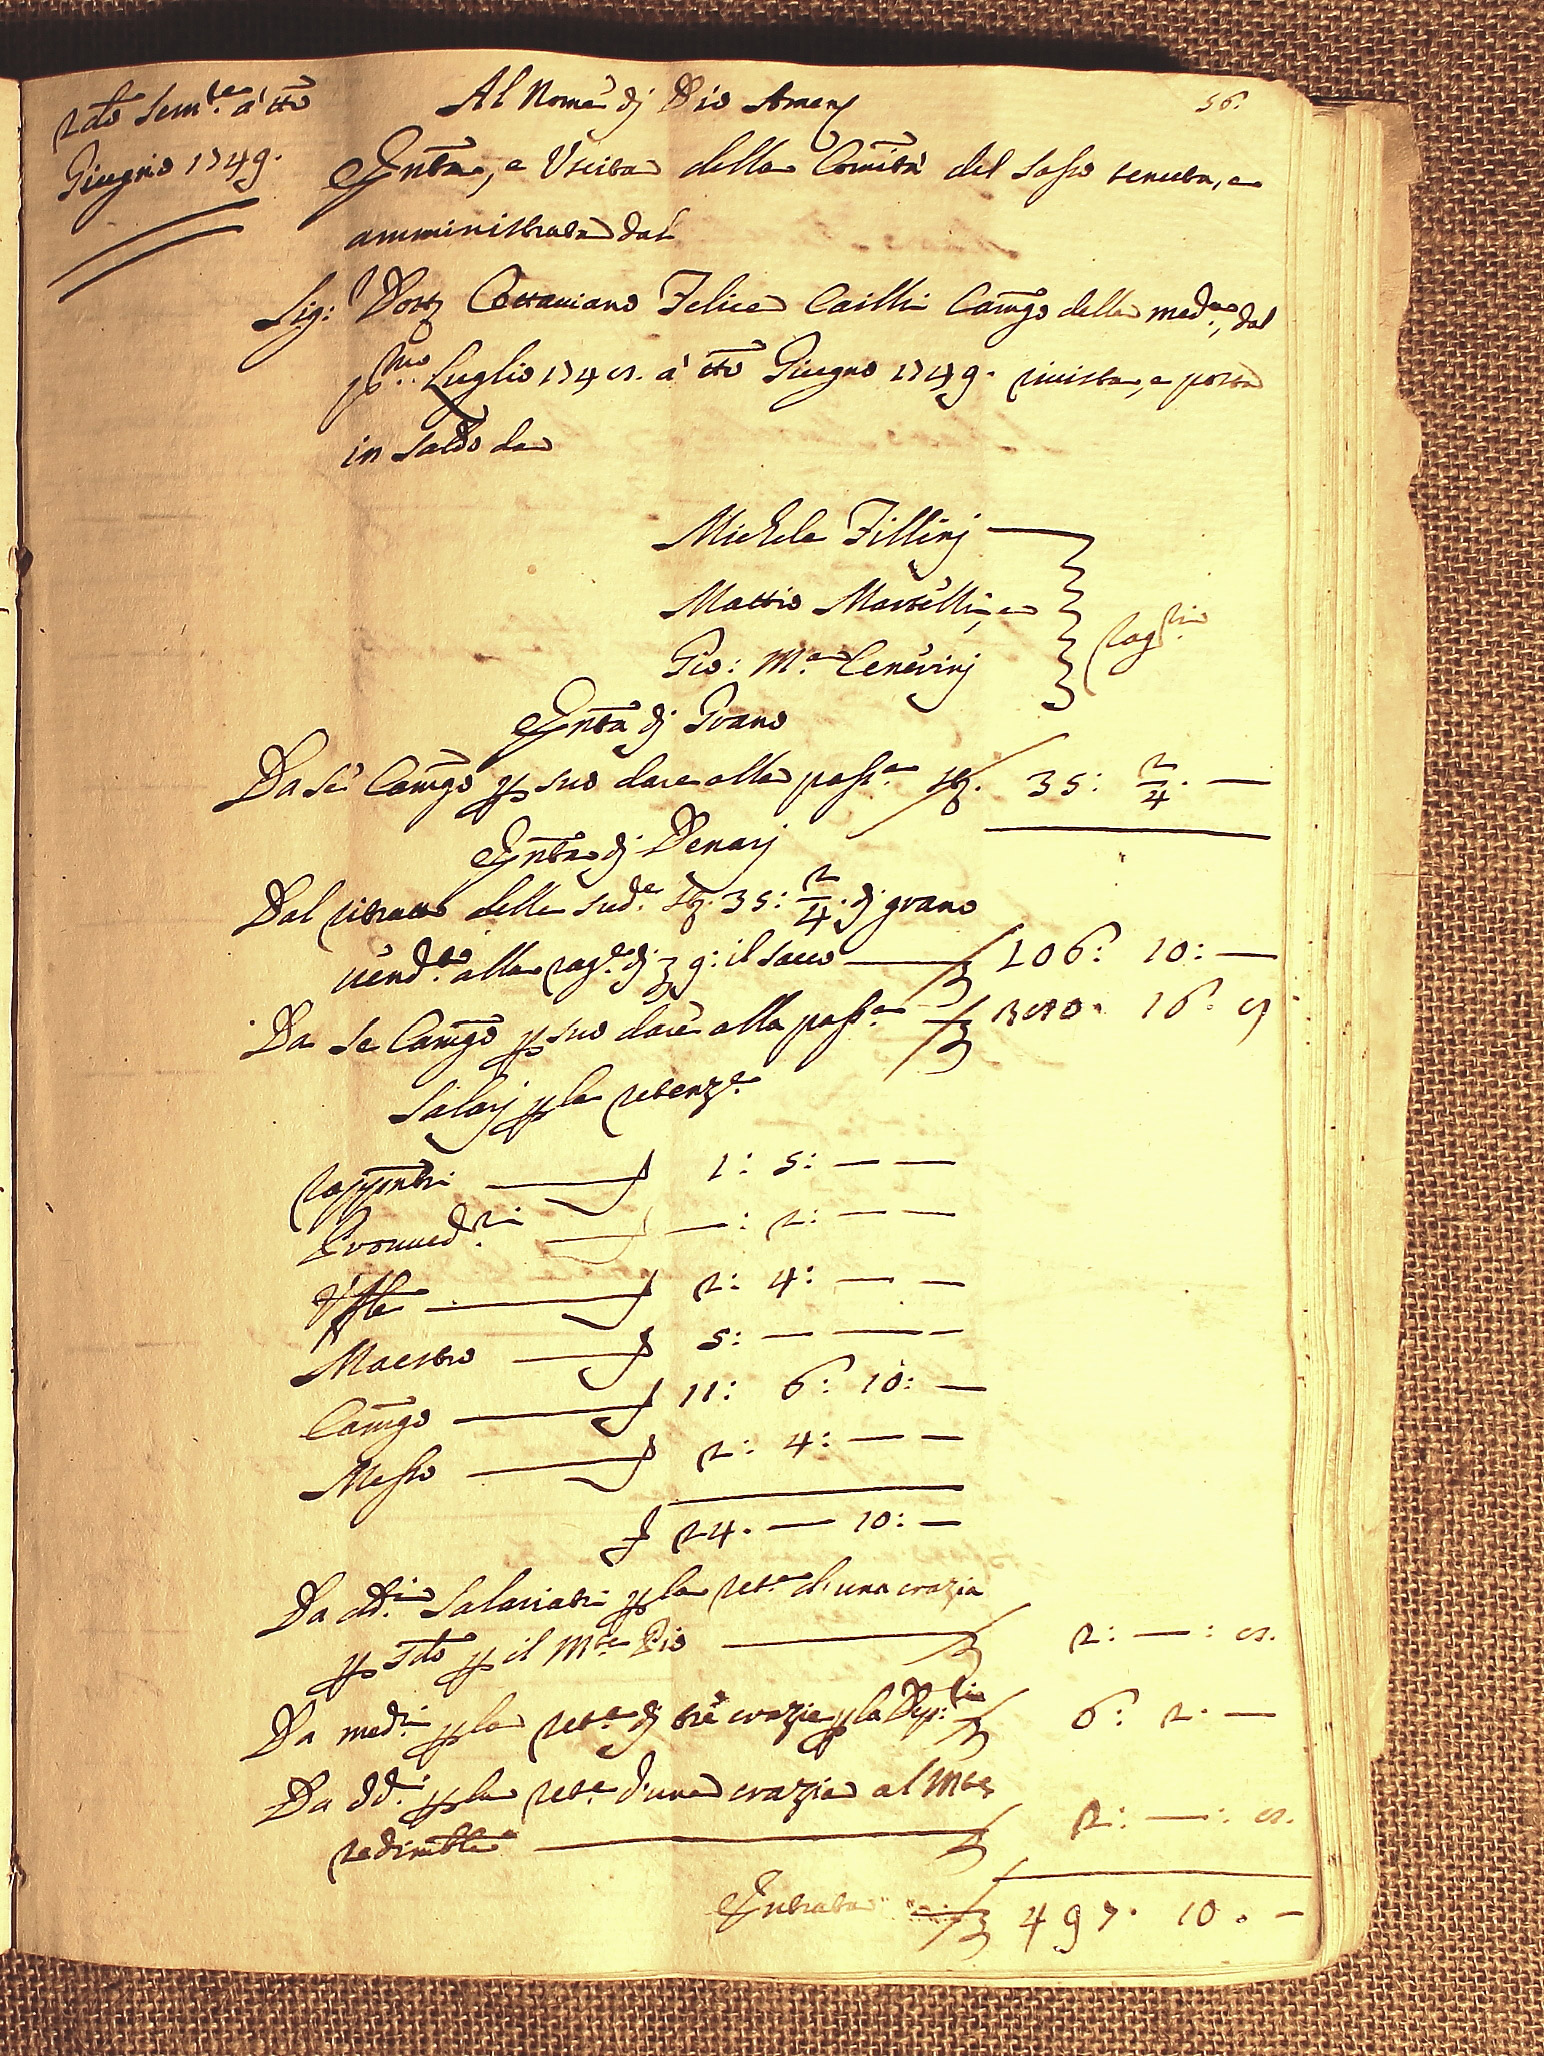 2do Sem.te a' tto
Giugno 1749.
Al Nome di Dio Amen
56.
Entra, e Uscita della Comità del Sasso tenuta, e
amministrata dal
Sig: Dott Ottaviano Felice Cailli Camgo della med.ma, dal
p.mo Luglio 1748. a' tto Giugno 1749. rivista, e posta
in saldo da
Michele Fillinj
Mattio Martelli, e
Gio: M.a Cenerinj
rag.ri
Entra di Grano
Da Se Camgo p suo dare alla pass.a sg. 35: 2/4. —
Entra di Denarj
Dal ritratto delle sud.e sg. 35: 2/4. di grano
vend.to alla rag.e di 9: il sacco — 106: 10: —
Da Se Camgo p suo dare alla pass.a 380. 16. 8
Salarj p la retenz.e
rappntri — 1: 5: — —
Provved.ri — —: 2: — —
Uffle — 2: 4: — —
Maestro — 5: — — —
Camgo — 11: 6: 10: —
Messo — 2: 4: — —
24. — 10: —
Da dd.i Salariati p la ret.e d'una crazia
p sdo p il Mte Pio — 2: —: 8.
Da med.i p la ret.e di tre crazie p la Dep. 6: 2. —
Da dd.i p la ret.e d'una crazia al Mte
redimble — 2: —: 8.
Entrata 497. 10. —